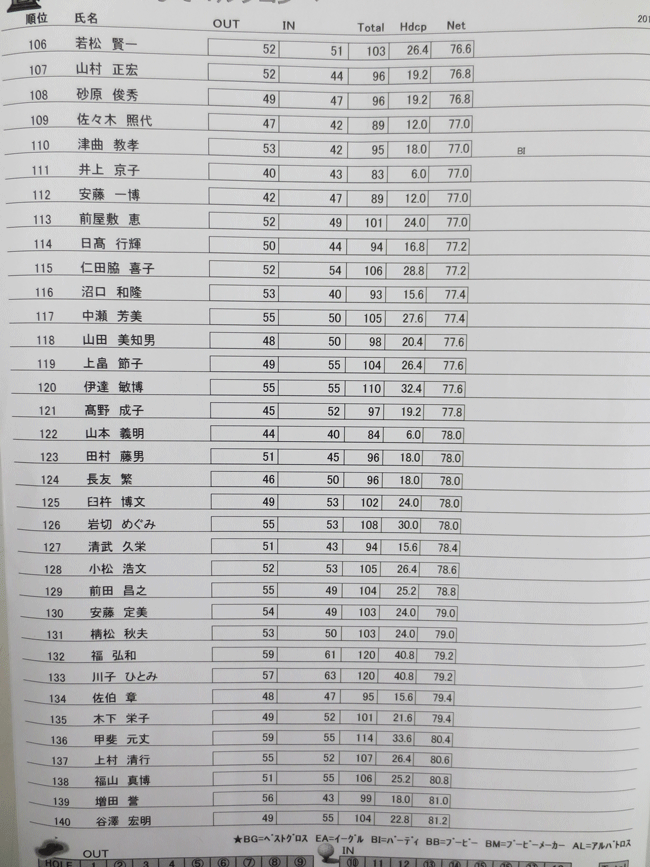 順位 氏名 OUT IN Total Hdcp Net 201
106 若松 賢一 52 51 103 26.4 76.6
107 山村 正宏 52 44 96 19.2 76.8
108 砂原 俊秀 49 47 96 19.2 76.8
109 佐々木 照代 47 42 89 12.0 77.0
110 津曲 教孝 53 42 95 18.0 77.0 BI
111 井上 京子 40 43 83 6.0 77.0
112 安藤 一博 42 47 89 12.0 77.0
113 前屋敷 恵 52 49 101 24.0 77.0
114 日髙 行輝 50 44 94 16.8 77.2
115 仁田脇 喜子 52 54 106 28.8 77.2
116 沼口 和隆 53 40 93 15.6 77.4
117 中瀬 芳美 55 50 105 27.6 77.4
118 山田 美知男 48 50 98 20.4 77.6
119 上畠 節子 49 55 104 26.4 77.6
120 伊達 敏博 55 55 110 32.4 77.6
121 髙野 成子 45 52 97 19.2 77.8
122 山本 義明 44 40 84 6.0 78.0
123 田村 藤男 51 45 96 18.0 78.0
124 長友 繁 46 50 96 18.0 78.0
125 臼杵 博文 49 53 102 24.0 78.0
126 岩切 めぐみ 55 53 108 30.0 78.0
127 清武 久栄 51 43 94 15.6 78.4
128 小松 浩文 52 53 105 26.4 78.6
129 前田 昌之 55 49 104 25.2 78.8
130 安藤 定美 54 49 103 24.0 79.0
131 楠松 秋夫 53 50 103 24.0 79.0
132 福 弘和 59 61 120 40.8 79.2
133 川子 ひとみ 57 63 120 40.8 79.2
134 佐伯 章 48 47 95 15.6 79.4
135 木下 栄子 49 52 101 21.6 79.4
136 甲斐 元丈 59 55 114 33.6 80.4
137 上村 清行 55 52 107 26.4 80.6
138 福山 真博 51 55 106 25.2 80.8
139 増田 誉 56 43 99 18.0 81.0
140 谷澤 宏明 49 55 104 22.8 81.2
★BG=ﾍﾞｽﾄｸﾞﾛｽ EA=ｲｰｸﾞﾙ BI=ﾊﾞｰﾃﾞｨ BB=ﾌﾞｰﾋﾞｰ BM=ﾌﾞｰﾋﾞｰﾒｰｶｰ AL=ｱﾙﾊﾞﾄﾛｽ
OUT IN
HOLE 1 ② 3 4 ⑤ ⑥ 7 ⑧ ⑨ ⑩ 11 12